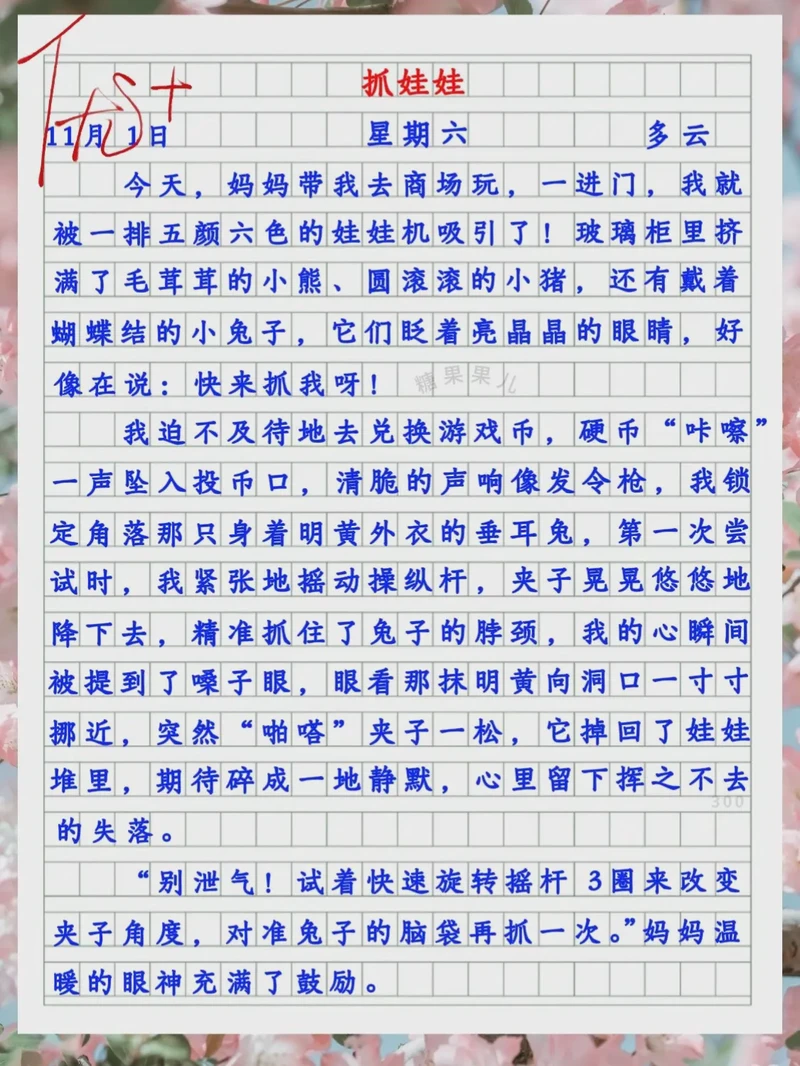 抓娃娃
11月 1日 星期六 多云
今天，妈妈带我去商场玩，一进门，我就
被一排五颜六色的娃娃机吸引了！玻璃柜里挤
满了毛茸茸的小熊、圆滚滚的小猪，还有戴着
蝴蝶结的小兔子，它们眨着亮晶晶的眼睛，好
像在说：快来抓我呀！
糖果果儿
我迫不及待地去兑换游戏币，硬币“咔嚓”
一声坠入投币口，清脆的声响像发令枪，我锁
定角落那只身着明黄外衣的垂耳兔，第一次尝
试时，我紧张地摇动操纵杆，夹子晃晃悠悠地
降下去，精准抓住了兔子的脖颈，我的心瞬间
被提到了嗓子眼，眼看那抹明黄向洞口一寸寸
挪近，突然“啪嗒”夹子一松，它掉回了娃娃
堆里，期待碎成一地静默，心里留下挥之不去
300
的失落。
“别泄气！试着快速旋转摇杆 3圈来改变
夹子角度，对准兔子的脑袋再抓一次。”妈妈温
暖的眼神充满了鼓励。